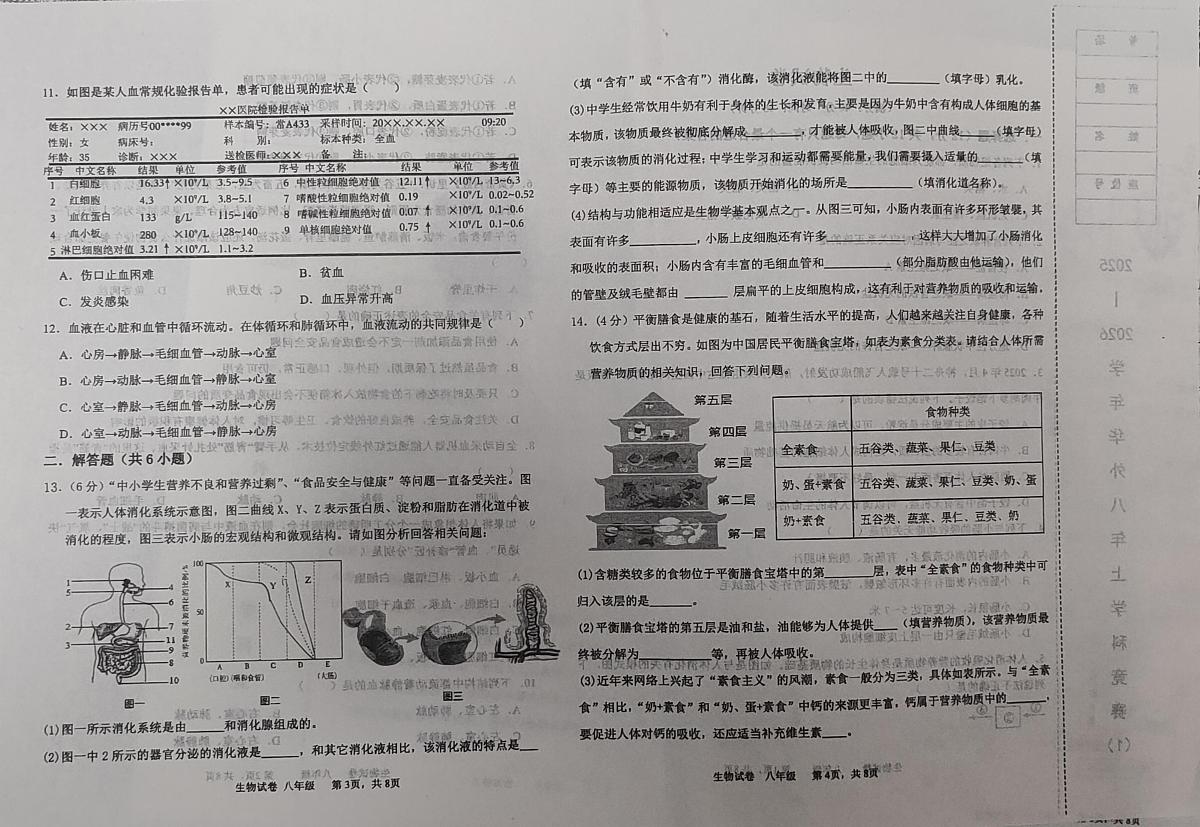 11．如图是某人血常规化验报告单，患者可能出现的症状是（　　）
××医院检验报告单
姓名：××× 病历号00****99 样本编号：常A433 采样时间：20××.××.×× 09:20
性别：女 病床号： 科 别： 标本种类：全血
年龄：35 诊断：××× 送检医师：××× 备 注：
序号 中文名称 结果 单位 参考值 序号 中文名称 结果 单位 参考值
1 白细胞 16.33↑ ×10⁹/L 3.5~9.5 6 中性粒细胞绝对值 12.11↑ ×10⁹/L ·13~6.3
2 红细胞 4.3 ×10⁹/L 3.8~5.1 7 嗜酸性粒细胞绝对值 0.19 ×10⁹/L 0.02~0.52
3 血红蛋白 133 g/L 115~140 8 嗜碱性粒细胞绝对值 0.07 ↑ ×10⁹/L 0.1~0.6
4 血小板 280 ×10⁹/L 128~140 9 单核细胞绝对值 0.75 ↑ ×10⁹/L 0.1~0.6
5 淋巴细胞绝对值 3.21 ↑ ×10⁹/L 1.1~3.2
A．伤口止血困难 B．贫血
C．发炎感染 D．血压异常升高
12．血液在心脏和血管中循环流动。在体循环和肺循环中，血液流动的共同规律是（　　）
A．心房→静脉→毛细血管→动脉→心室
B．心房→动脉→毛细血管→静脉→心室
C．心室→静脉→毛细血管→动脉→心房
D．心室→动脉→毛细血管→静脉→心房
二．解答题（共6小题）
13．（6分）“中小学生营养不良和营养过剩”、“食品安全与健康”等问题一直备受关注。图
一表示人体消化系统示意图，图二曲线X、Y、Z表示蛋白质、淀粉和脂肪在消化道中被
消化的程度，图三表示小肠的宏观结构和微观结构。请如图分析回答相关问题：
1 5 2 3 4 6 7 11 9 8 10
图一
营养物质未被消化的比例/%
100 50 0
X Y Z
A B C D E
(口腔) (咽和食管) (大肠)
图二
图三
(1)图一所示消化系统是由______和消化腺组成的。
(2)图一中2所示的器官分泌的消化液是______，和其它消化液相比，该消化液的特点是___
生物试卷 八年级 第3页，共8页
（填“含有”或“不含有”）消化酶，该消化液能将图二中的________（填字母）乳化。
(3)中学生经常饮用牛奶有利于身体的生长和发育。主要是因为牛奶中含有构成人体细胞的基
本物质，该物质最终被彻底分解成________，才能被人体吸收，图二中曲线____（填字母）
可表示该物质的消化过程；中学生学习和运动都需要能量，我们需要摄入适量的______（填
字母）等主要的能源物质，该物质开始消化的场所是________（填消化道名称）。
(4)结构与功能相适应是生物学基本观点之一。从图三可知，小肠内表面有许多环形皱襞，其
表面有许多__________，小肠上皮细胞还有许多__________，这样大大增加了小肠消化
和吸收的表面积；小肠内含有丰富的毛细血管和__________（部分脂肪酸由他运输），他们
的管壁及绒毛壁都由 ______ 层扁平的上皮细胞构成，这有利于对营养物质的吸收和运输．
14．（4分）平衡膳食是健康的基石，随着生活水平的提高，人们越来越关注自身健康，各种
饮食方式层出不穷。如图为中国居民平衡膳食宝塔，如表为素食分类表。请结合人体所需
营养物质的相关知识，回答下列问题。
第五层
第四层
第三层
第二层
第一层
食物种类
全素食 五谷类、蔬菜、果仁、豆类
奶、蛋+素食 五谷类、蔬菜、果仁、豆类、奶、蛋
奶+素食 五谷类、蔬菜、果仁、豆类、奶
(1)含糖类较多的食物位于平衡膳食宝塔中的第______层，表中“全素食”的食物种类中可
归入该层的是______。
(2)平衡膳食宝塔的第五层是油和盐，油能够为人体提供___（填营养物质），该营养物质最
终被分解为__________等，再被人体吸收。
(3)近年来网络上兴起了“素食主义”的风潮，素食一般分为三类，具体如表所示。与“全素
食”相比，“奶+素食”和“奶、蛋+素食”中钙的来源更丰富，钙属于营养物质中的______，
要促进人体对钙的吸收，还应适当补充维生素___。
生物试卷 八年级 第4页，共8页